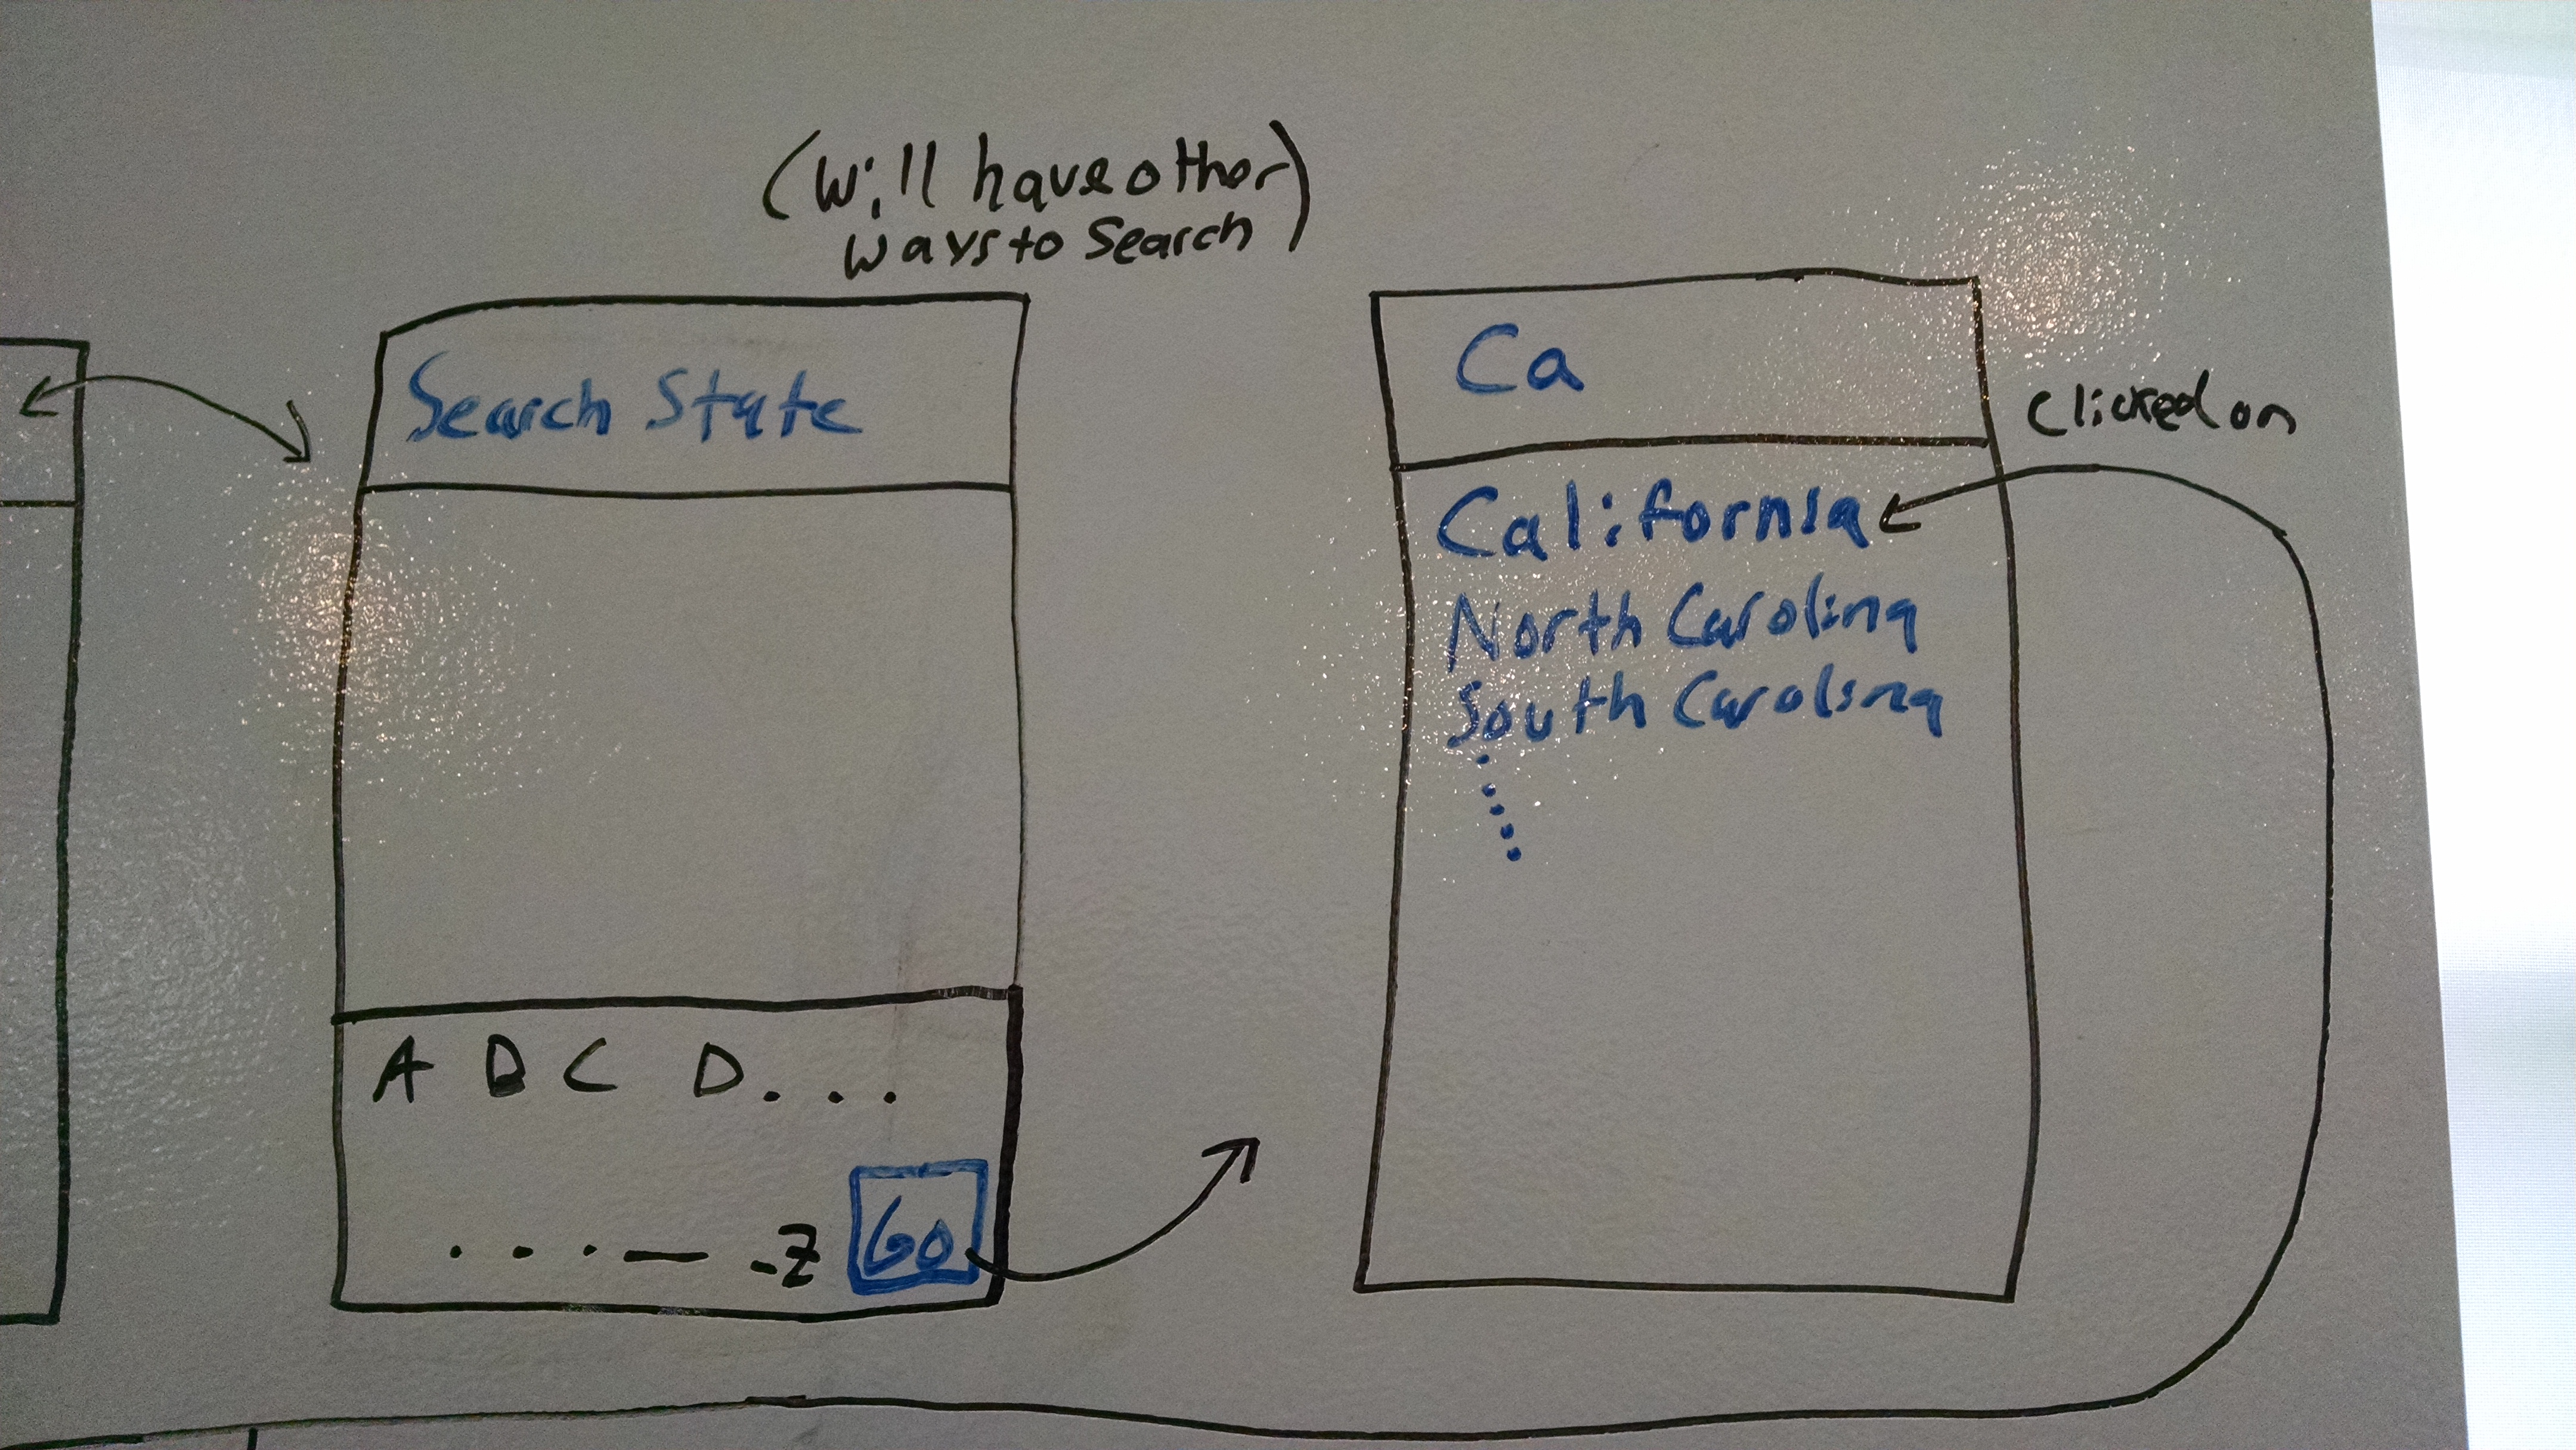 (Will have other
ways to Search)
Search State
A B C D...
...— -Z Go
Ca
Clicked on
California
North Carolina
South Carolina